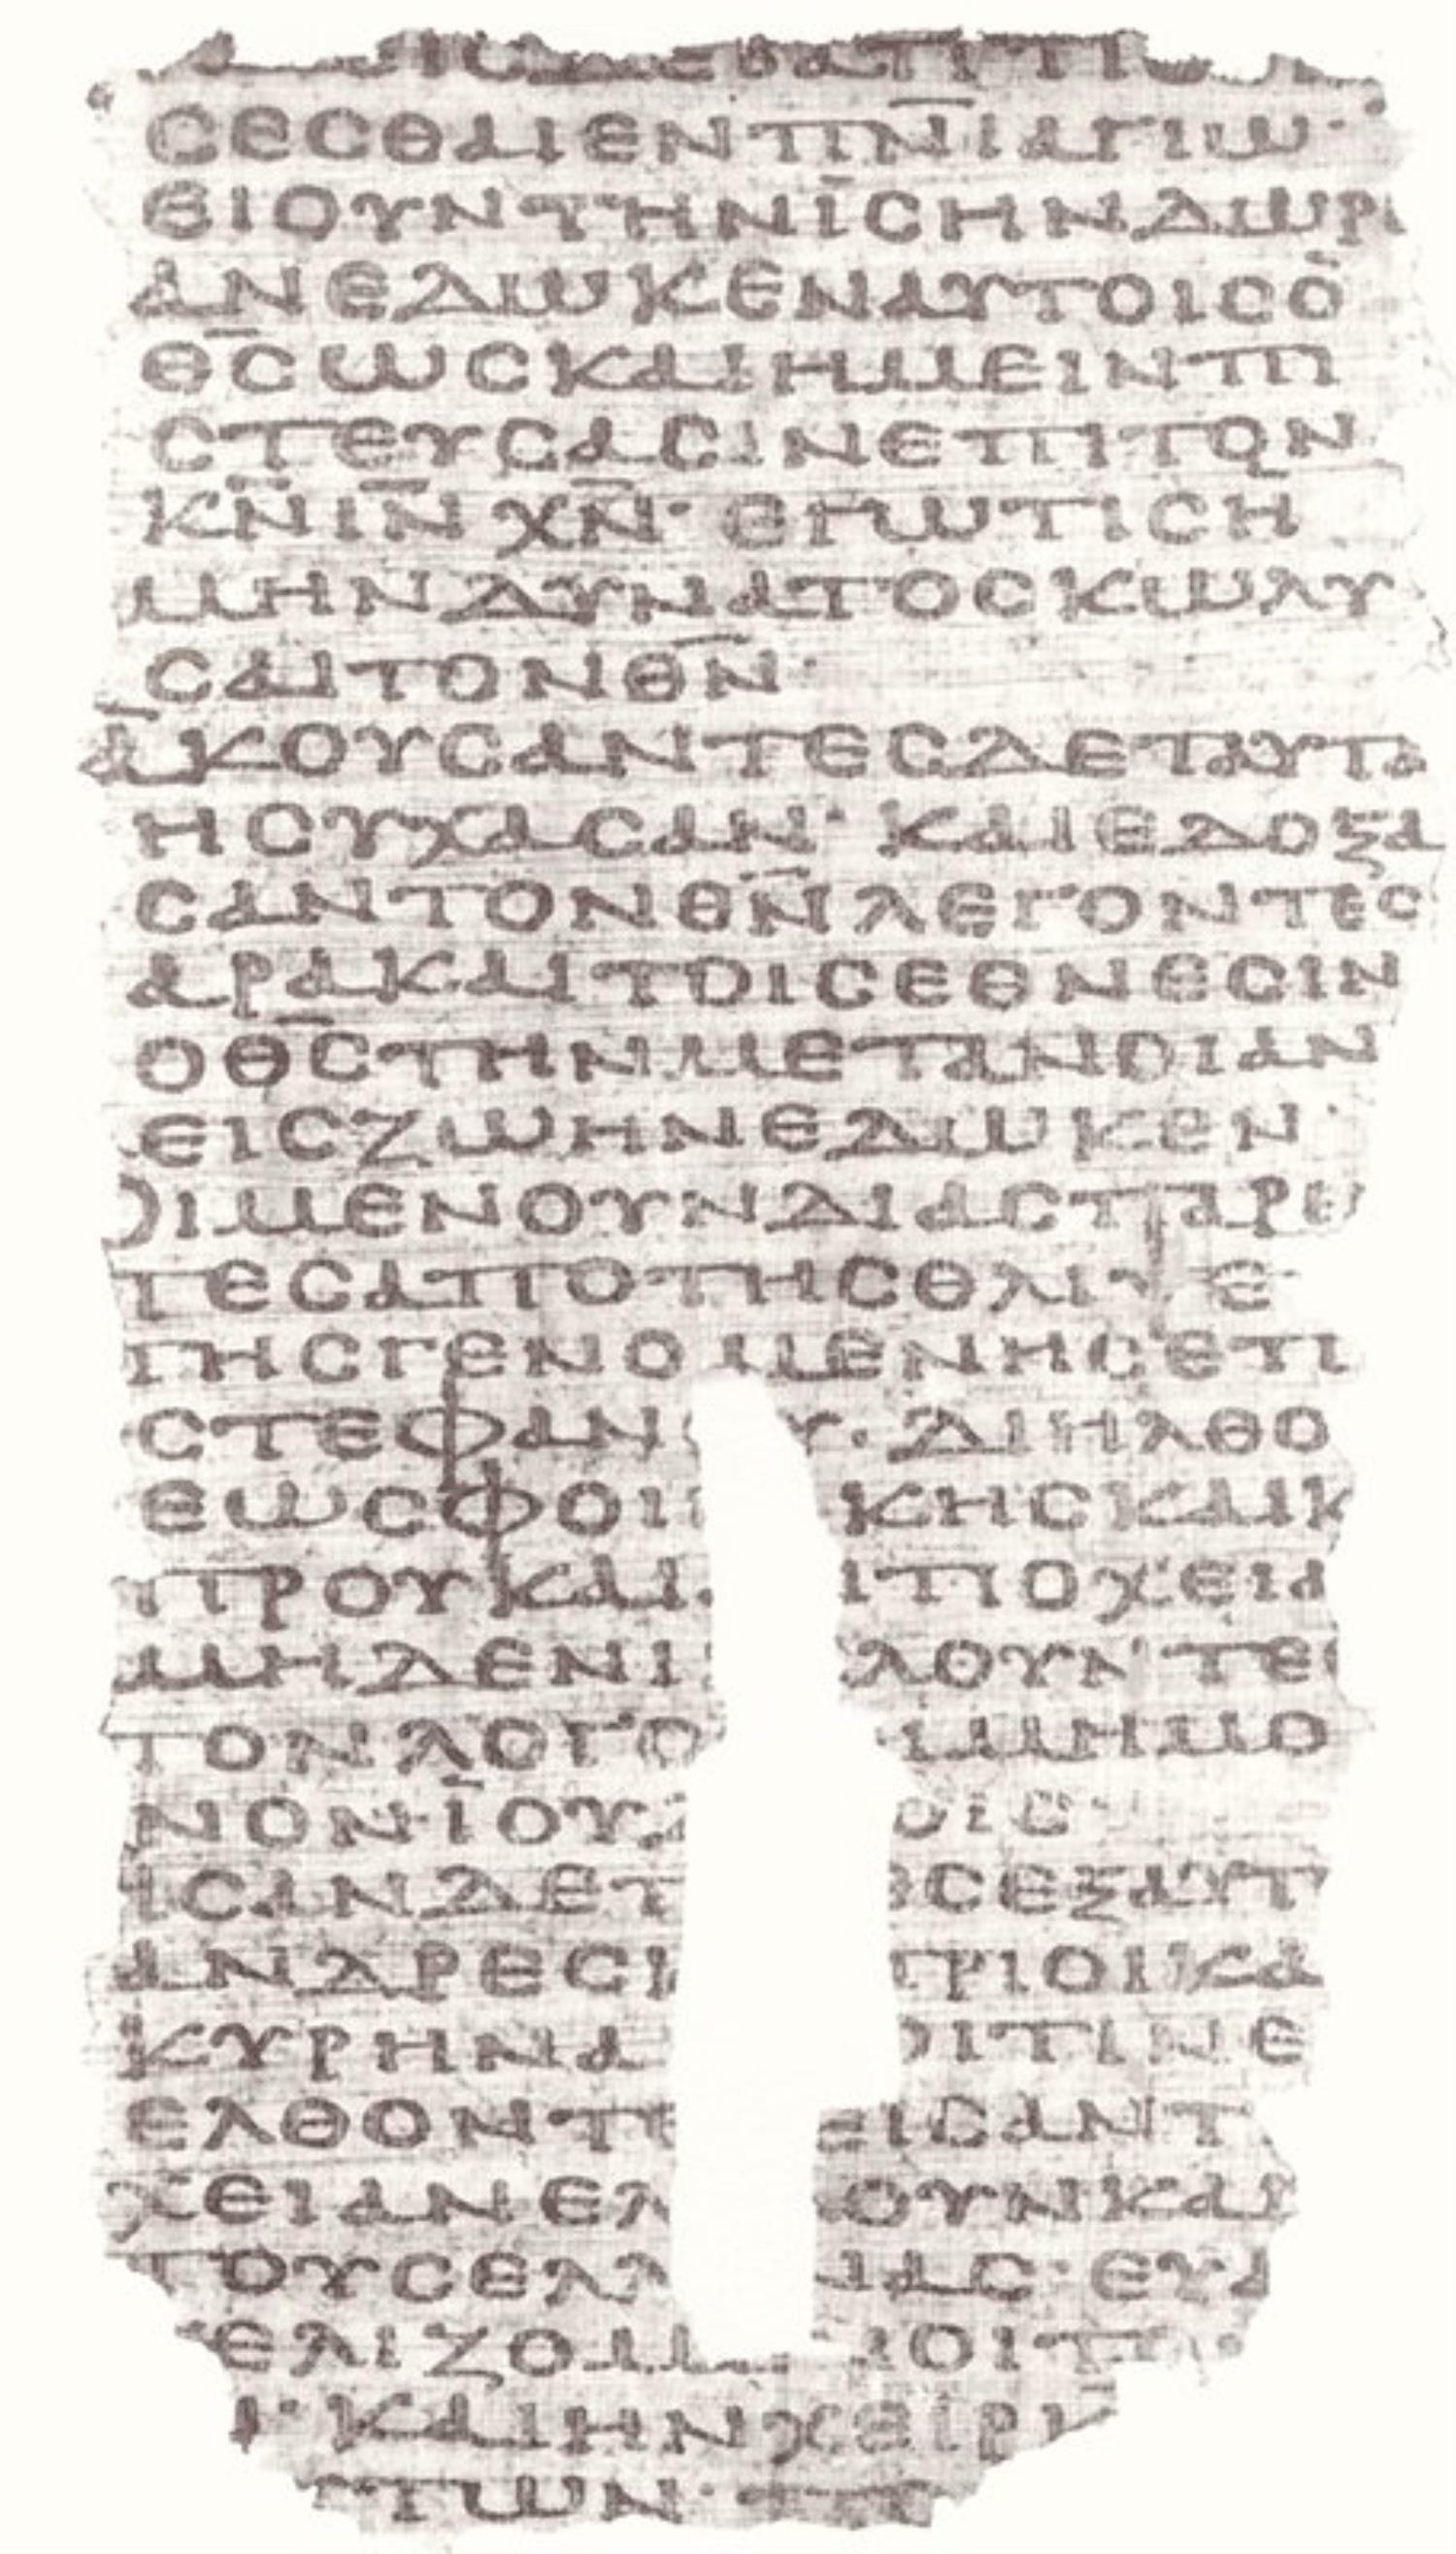 ϹΕϹΘΑΙΕΝΠ̅Ν̅ΙΑΓΙΩ·
ΕΙΟΥΝΤΗΝΙϹΗΝΔΩΡΕ
ΑΝΕΔΩΚΕΝΑΥΤΟΙϹΟ
Θ̅Ϲ̅ΩϹΚΑΙΗΜΕΙΝΠΙ
ϹΤΕΥϹΑϹΙΝΕΠΙΤΟΝ
Κ̅Ν̅Ι̅Ν̅Χ̅Ν̅·ΕΓΩΤΙϹΗ
ΜΗΝΔΥΝΑΤΟϹΚΩΛΥ
ϹΑΙΤΟΝΘ̅Ν̅·
ΑΚΟΥϹΑΝΤΕϹΔΕΤΑΥΤΑ
ΗϹΥΧΑϹΑΝ·ΚΑΙΕΔΟΞΑ
ϹΑΝΤΟΝΘ̅Ν̅ΛΕΓΟΝΤΕϹ
ΑΡΑΚΑΙΤΟΙϹΕΘΝΕϹΙΝ
ΟΘ̅Ϲ̅ΤΗΝΜΕΤΑΝΟΙΑΝ
ΕΙϹΖΩΗΝΕΔΩΚΕΝ·
ΟΙΜΕΝΟΥΝΔΙΑϹΠΑΡΕ
ΤΕϹΑΠΟΤΗϹΘΛΙΨΕ
ΤΗϹΓΕΝΟΜΕΝΗϹΕΠΙ
ϹΤΕΦΑΝ Υ·ΔΙΗΛΘΟ
ΕΩϹΦΟΙ ΚΗϹΚΑΙΚ
ΠΡΟΥΚΑΙ ΤΙΟΧΕΙΑ
ΜΗΔΕΝΙ ΛΟΥΝΤΕϹ
ΤΟΝΛΟΓΟ ΙΜΗΜΟ
ΝΟΝΙΟΥΔ ΟΙϹ·
ΗϹΑΝΔΕΤ ΕϹΕΞΑΥΤ
ΑΝΔΡΕϹΚ ΠΡΙΟΙΚΑ
ΚΥΡΗΝΑ ΟΙΤΙΝΕ
ΕΛΘΟΝΤΕ ΕΙϹΑΝΤ
ΧΕΙΑΝΕΛ ΟΥΝΚΑΙ
ΤΟΥϹΕΛΛ ΝΑϹ·ΕΥΑ
ΕΛΙΖΟΜ ΟΙΤ
Ν·ΚΑΙΗΝΧΕΙΡΚ
ΤΩΝ·